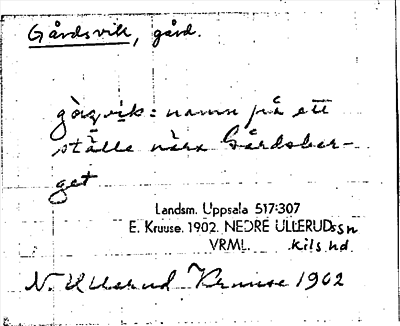 Gårdsvik, gård.
gàṣvik: namn på ett
ställe nära Gårdsber-
get
Landsm. Uppsala 517:307
E. Kruuse. 1902. NEDRE ULLERUD ssn
VRML. Kils hd
N. Ullerud Kruuse 1902